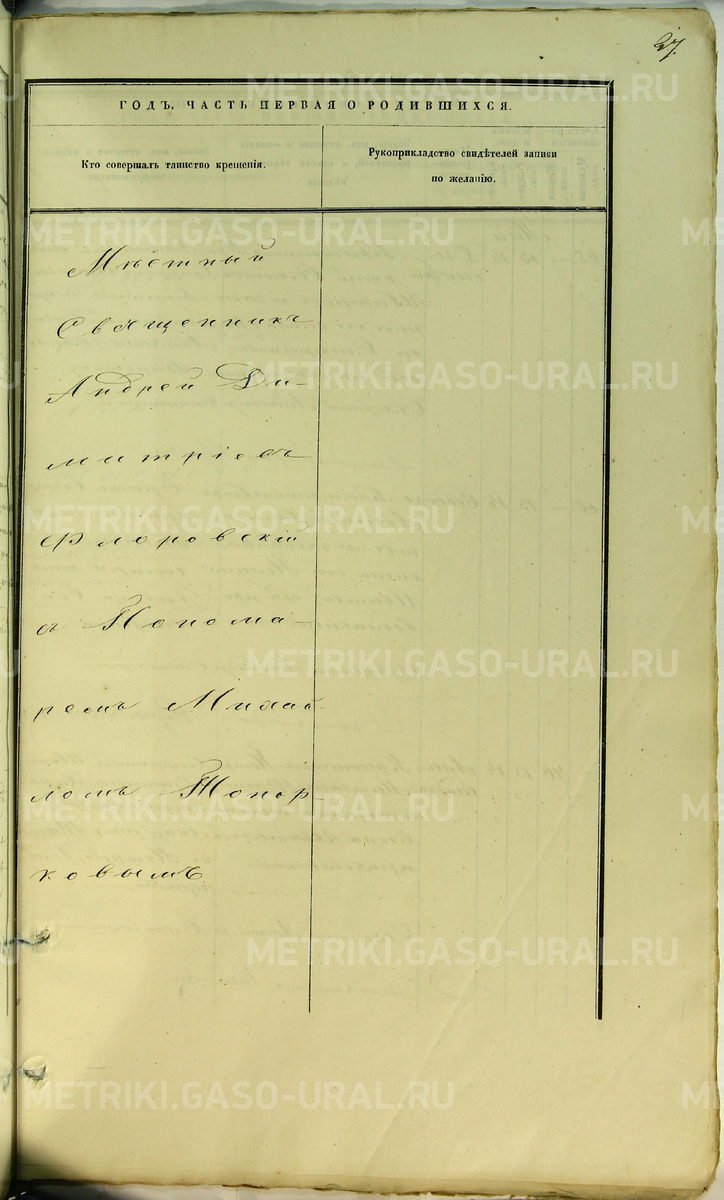 27.
ГОДЪ, ЧАСТЬ ПЕРВАЯ О РОДИВШИХСЯ.
Кто совершалъ таинство крещенія.
Рукоприкладство свидѣтелей записи
по желанію.
Мѣстный
Священникъ
Андрей Ди-
митріевъ
Флоровскій
съ Понома-
ремъ Михаи-
ломъ Топор-
ковымъ
METRIKI.GASO-URAL.RU